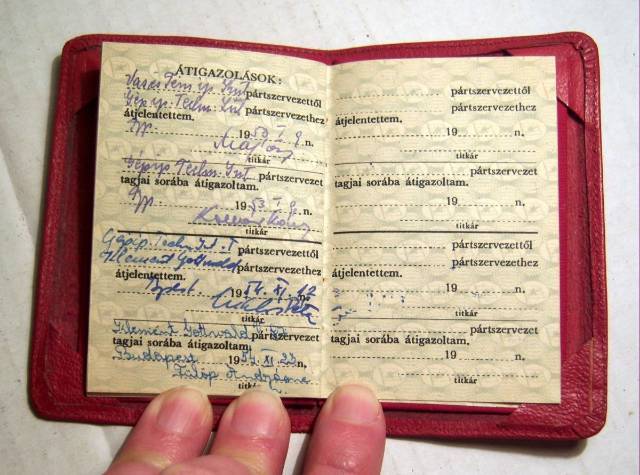 ÁTIGAZOLÁSOK:
Vasas Fém ip. Int pártszervezettől
Gép ip. Techn. Int pártszervezethez
átjelentettem.
Bp. 1953 I 9 n.
titkár
Gépip Techn. Int pártszervezet
tagjai sorába átigazoltam.
Bp. 1953 I 9 n.
titkár
Gépip. Techn. Int. I pártszervezettől
Klement Gottwald pártszervezethez
átjelentettem.
Bpest 1954 XI 12 n.
titkár
Klement Gottwald pártszervezet
tagjai sorába átigazoltam.
Budapest 1954. XI 23 n.
Fülöp
titkár
pártszervezettől
pártszervezethez
átjelentettem.
19 n.
titkár
pártszervezet
tagjai sorába átigazoltam.
19 n.
titkár
pártszervezettől
pártszervezethez
átjelentettem.
19 n.
titkár
pártszervezet
tagjai sorába átigazoltam.
19 n.
titkár